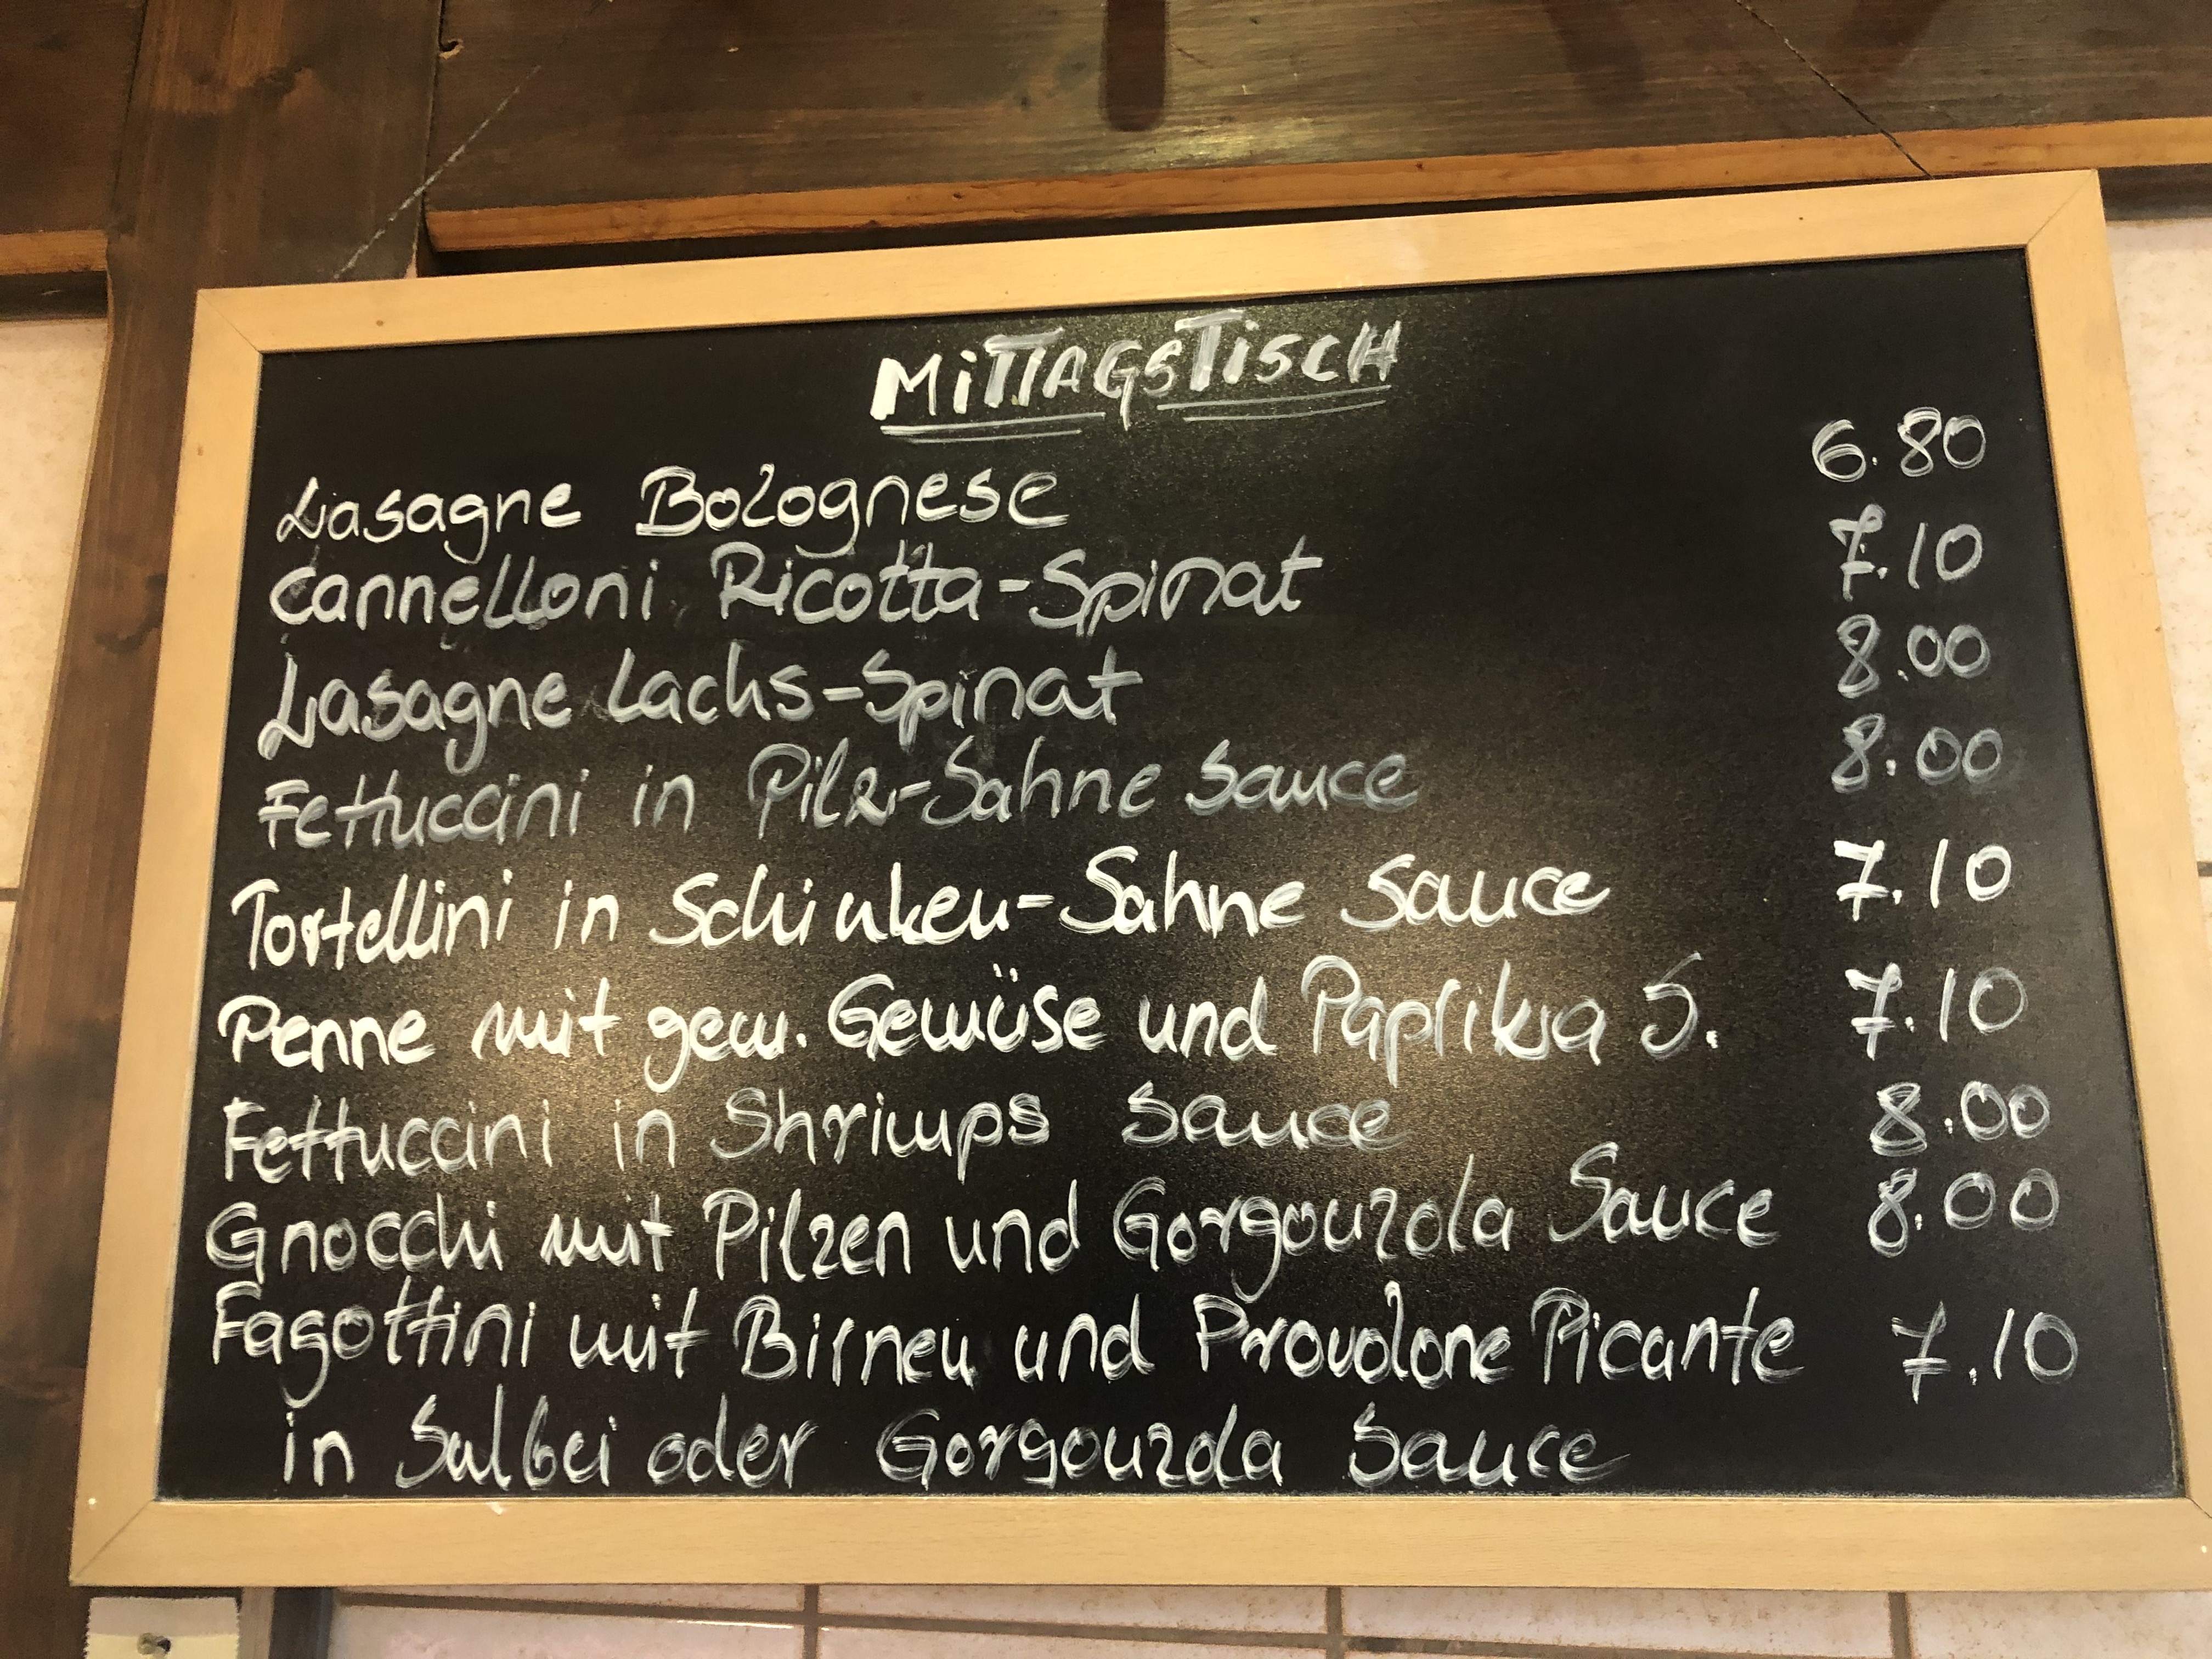 MiTTAGSTiSCH
Lasagne Bolognese 6.80
Cannelloni Ricotta-Spinat 7.10
Lasagne Lachs-Spinat 8.00
Fettuccini in Pilz-Sahne Sauce 8.00
Tortellini in Schinken-Sahne Sauce 7.10
Penne mit gem. Gemüse und Paprika S. 7.10
Fettuccini in Shrimps Sauce 8.00
Gnocchi mit Pilzen und Gorgonzola Sauce 8.00
Fagottini mit Birnen und Provolone Picante 7.10
in Salbei oder Gorgonzola Sauce